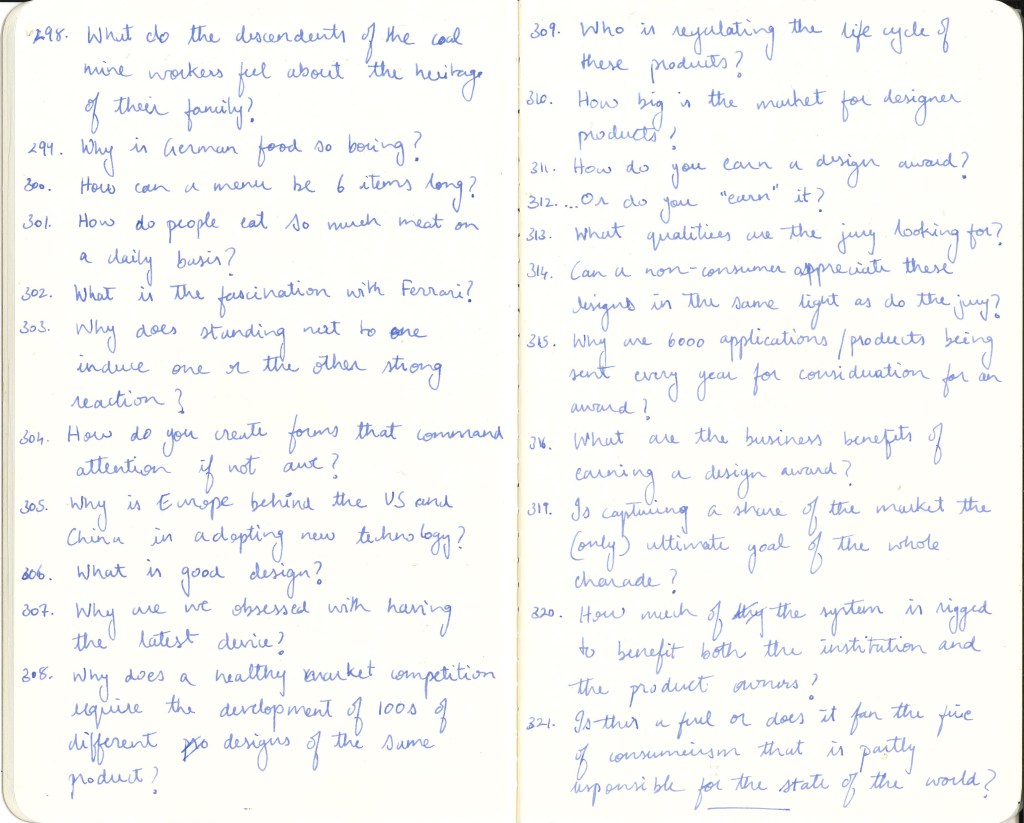 298. What do the descendents of the coal
mine workers feel about the heritage
of their family?
299. Why is German food so boring?
300. How can a menu be 6 items long?
301. How do people eat so much meat on
a daily basis?
302. What is the fascination with Ferrari?
303. Why does standing next to one
induce one or the other strong
reaction?
304. How do you create forms that command
attention if not awe?
305. Why is Europe behind the US and
China in adopting new technology?
306. What is good design?
307. Why are we obsessed with having
the latest device?
308. Why does a healthy market competition
require the development of 100s of
different designs of the same
product?
309. Who is regulating the life cycle of
these products?
310. How big is the market for designer
products?
311. How do you earn a design award?
312. ...Or do you "earn" it?
313. What qualities are the jury looking for?
314. Can a non-consumer appreciate these
designs in the same light as do the jury?
315. Why are 6000 applications/products being
sent every year for consideration for an
award?
316. What are the business benefits of
earning a design award?
319. Is capturing a share of the market the
(only) ultimate goal of the whole
charade?
320. How much of the system is rigged
to benefit both the institution and
the product owners?
321. Is this a fuel or does it fan the fire
of consumerism that is partly
responsible for the state of the world?